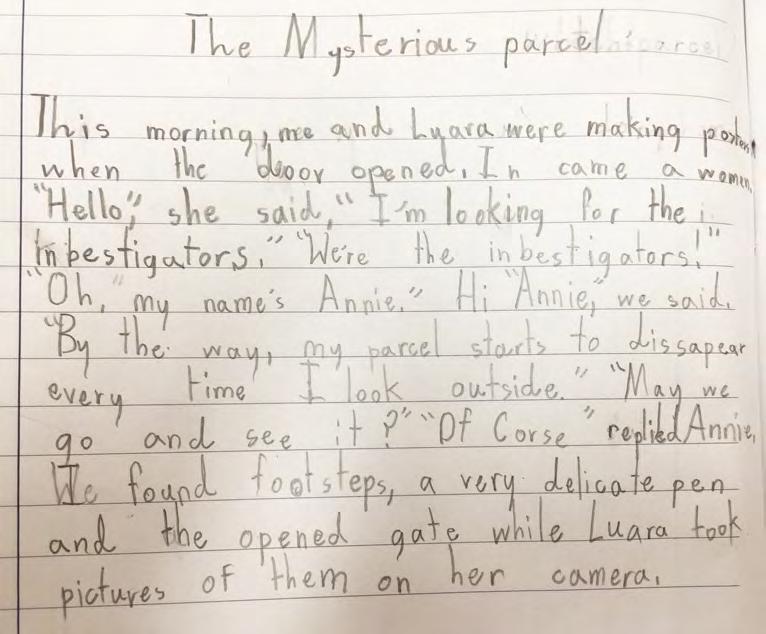 The Mysterious parcel
This morning, me and Lyara were making posters
when the door opened. In came a women.
"Hello," she said, "I'm looking for the
inbestigators." "We're the inbestigators!"
"Oh," my name's Annie." Hi "Annie," we said.
"By the way, my parcel starts to dissapear
every time I look outside." "May we
go and see it?" "Of Corse" replied Annie.
We found footsteps, a very delicate pen
and the opened gate while Luara took
pictures of them on her camera.